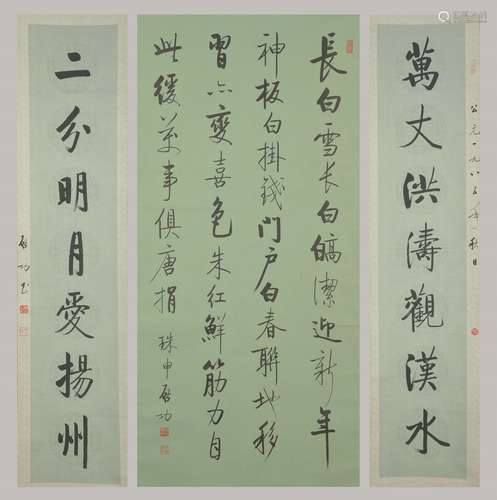 公元一九八五年秋日
萬丈洪濤觀漢水
長白雪长白皜潔迎新年
神板白掛錢門户白春聯地移
習亦變喜色朱紅鮮筋力自
此緩萬事俱唐捐 珠申啓功
二分明月愛揚州
啓功